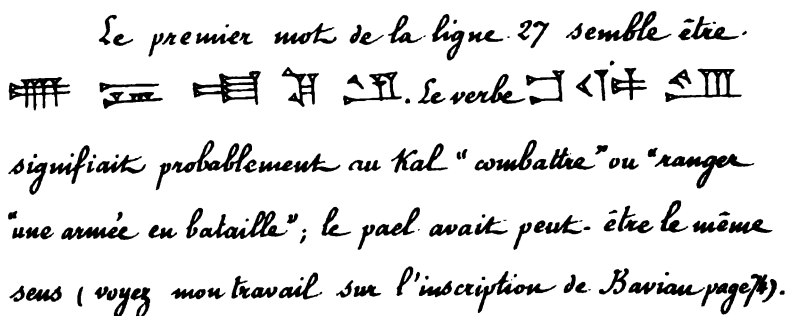 Le premier mot de la ligne 27 semble être
. Le verbe
signifiait probablement au Kal “combattre” ou “ranger
“une armée en bataille”; le pael avait peut-être le même
sens (voyez mon travail sur l'inscription de Bavian page).